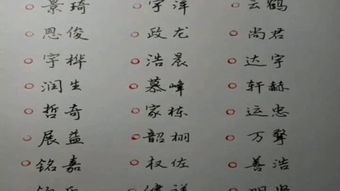 景琦 宇洋 云鹤
恩俊 政龙 尚君
宇桦 浩晨 达宇
润生 慕峰 轩赫
哲奇 家栋 运忠
展益 韶栩 万擎
铭嘉 权佐 善浩